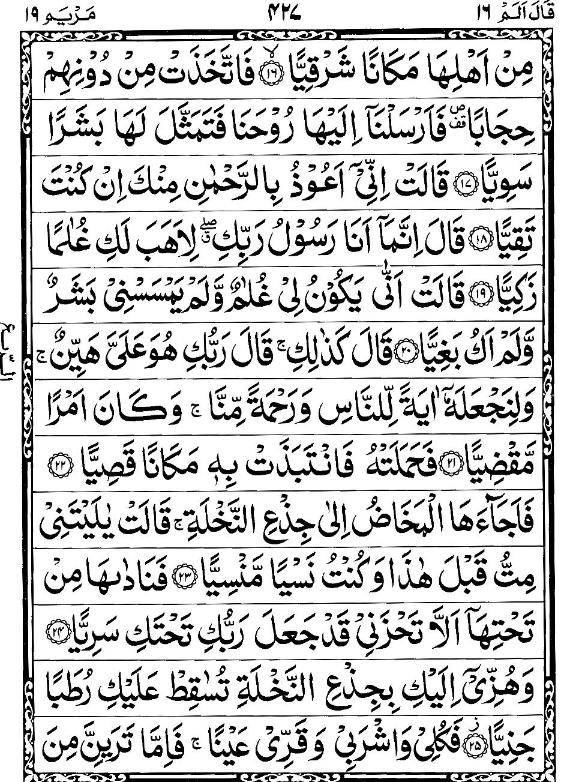 قَالَ اَلَمْ ١٦ ٤٢٧ مَرْيَم ١٩
مِنْ اَهْلِهَا مَكَانًا شَرْقِيًّا ۙ﴿١٦﴾ فَاتَّخَذَتْ مِنْ دُوْنِهِمْ
حِجَابًا ۪۫ فَاَرْسَلْنَاۤ اِلَيْهَا رُوْحَنَا فَتَمَثَّلَ لَهَا بَشَرًا
سَوِيًّا ﴿١٧﴾ قَالَتْ اِنِّىْۤ اَعُوْذُ بِالرَّحْمٰنِ مِنْكَ اِنْ كُنْتَ
تَقِيًّا ﴿١٨﴾ قَالَ اِنَّمَاۤ اَنَا رَسُوْلُ رَبِّكِ ۖۗ لِاَهَبَ لَكِ غُلٰمًا
زَكِيًّا ﴿١٩﴾ قَالَتْ اَنّٰى يَكُوْنُ لِىْ غُلٰمٌ وَّلَمْ يَمْسَسْنِىْ بَشَرٌ
وَّلَمْ اَكُ بَغِيًّا ﴿٢٠﴾ قَالَ كَذٰلِكِ ۚ قَالَ رَبُّكِ هُوَ عَلَىَّ هَيِّنٌ ۚ
وَلِنَجْعَلَهٗۤ اٰيَةً لِّلنَّاسِ وَرَحْمَةً مِّنَّا ۚ وَكَانَ اَمْرًا
مَّقْضِيًّا ﴿٢١﴾ فَحَمَلَتْهُ فَانْتَبَذَتْ بِهٖ مَكَانًا قَصِيًّا ﴿٢٢﴾
فَاَجَآءَهَا الْمَخَاضُ اِلٰى جِذْعِ النَّخْلَةِ ۚ قَالَتْ يٰلَيْتَنِىْ
مِتُّ قَبْلَ هٰذَا وَكُنْتُ نَسْيًا مَّنْسِيًّا ﴿٢٣﴾ فَنَادٰىهَا مِنْ
تَحْتِهَاۤ اَلَّا تَحْزَنِىْ قَدْ جَعَلَ رَبُّكِ تَحْتَكِ سَرِيًّا ﴿٢٤﴾
وَهُزِّىْۤ اِلَيْكِ بِجِذْعِ النَّخْلَةِ تُسٰقِطْ عَلَيْكِ رُطَبًا
جَنِيًّا ۫﴿٢٥﴾ فَكُلِىْ وَاشْرَبِىْ وَقَرِّىْ عَيْنًا ۚ فَاِمَّا تَرَيِنَّ مِنَ